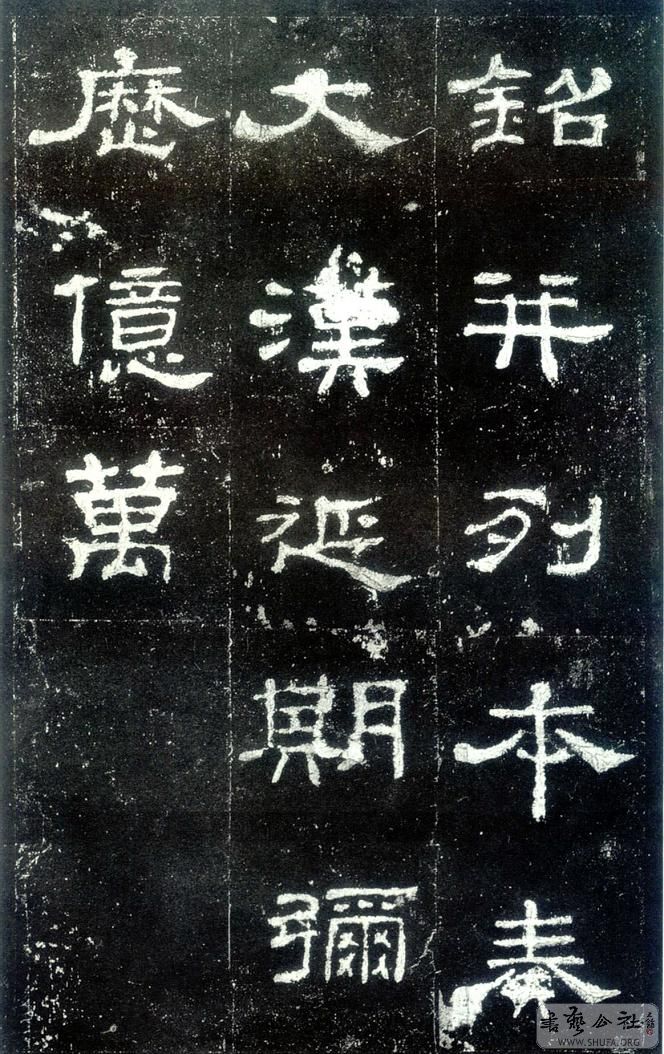 銘并列本奏
大漢延期彌
歷億萬
書藝公社
WWW.SHUFA.ORG